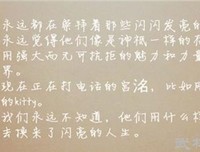 永远都在崇拜着那些闪闪发亮的
永远觉得他们像是神祇一样的存
用强大而无可抗拒的魅力和力量
界。
现在正在打电话的宫洺，比如刚
的kitty。
我们永远不知道，他们用什么样
去换来了闪亮的人生。